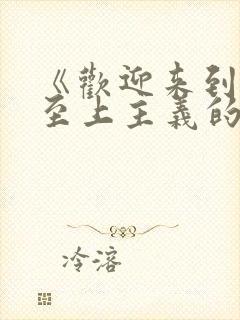 《歡迎来到
至上主義的
冷溶